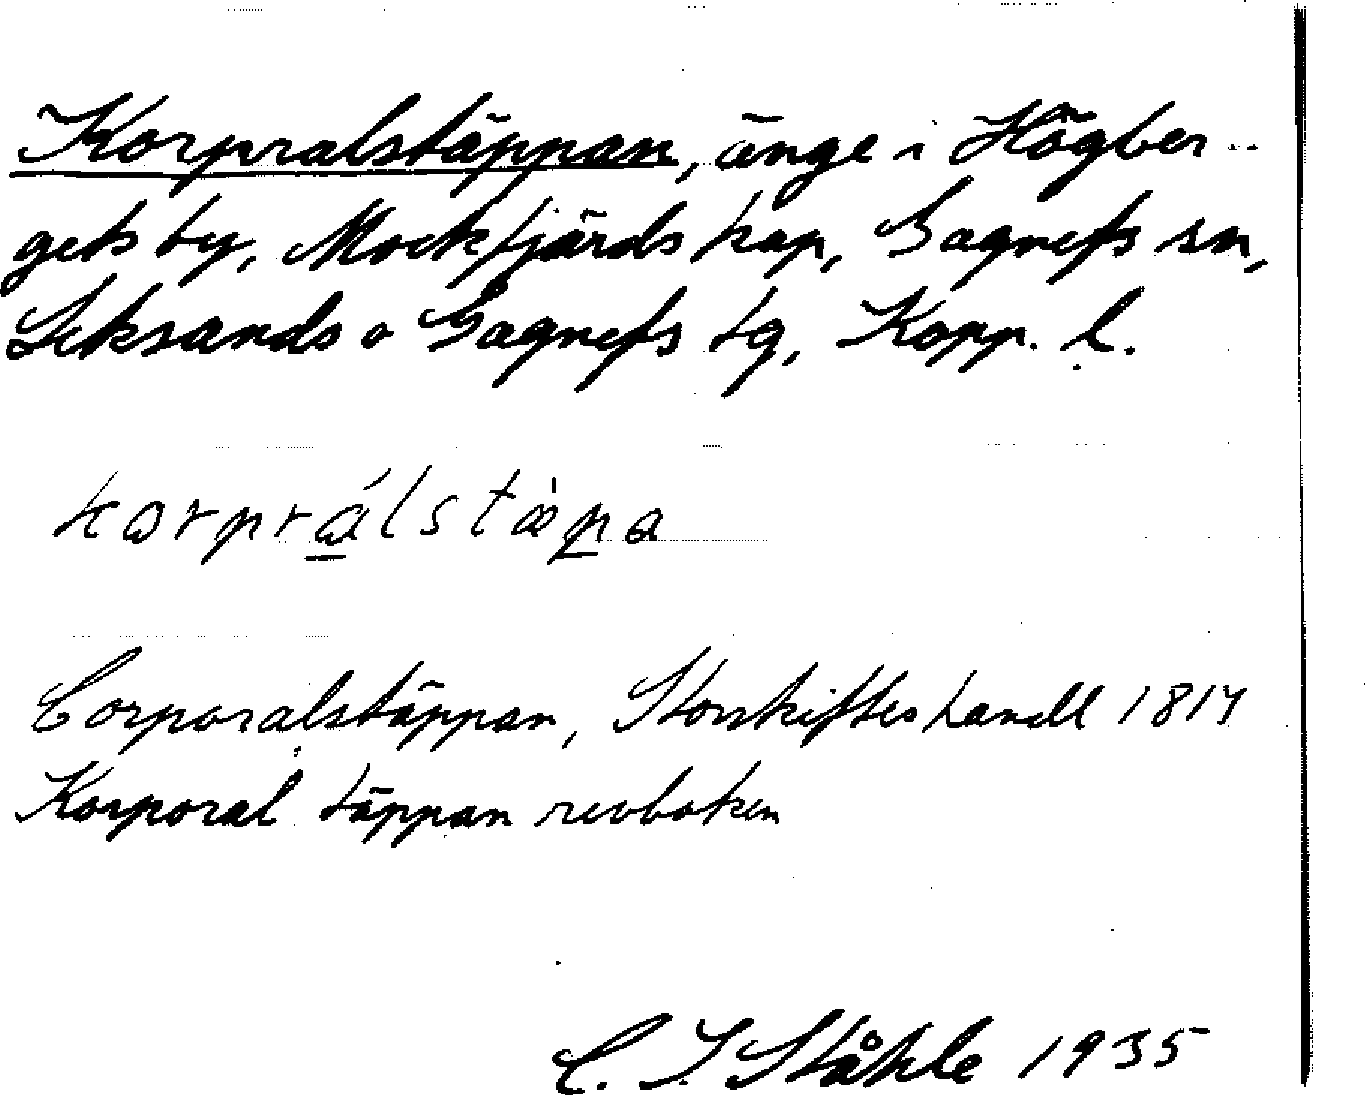 Korpralstäppan, änge i Högber-
gets by, Mockfjärds kap, Gagnefs sn,
Leksands o Gagnefs tg, Kopp. l.
kɷrprálstæ̀pa
Corporalstäppan, Storskifteshandl 1814
Korporal täppan revboken
C. I Ståhle 1935